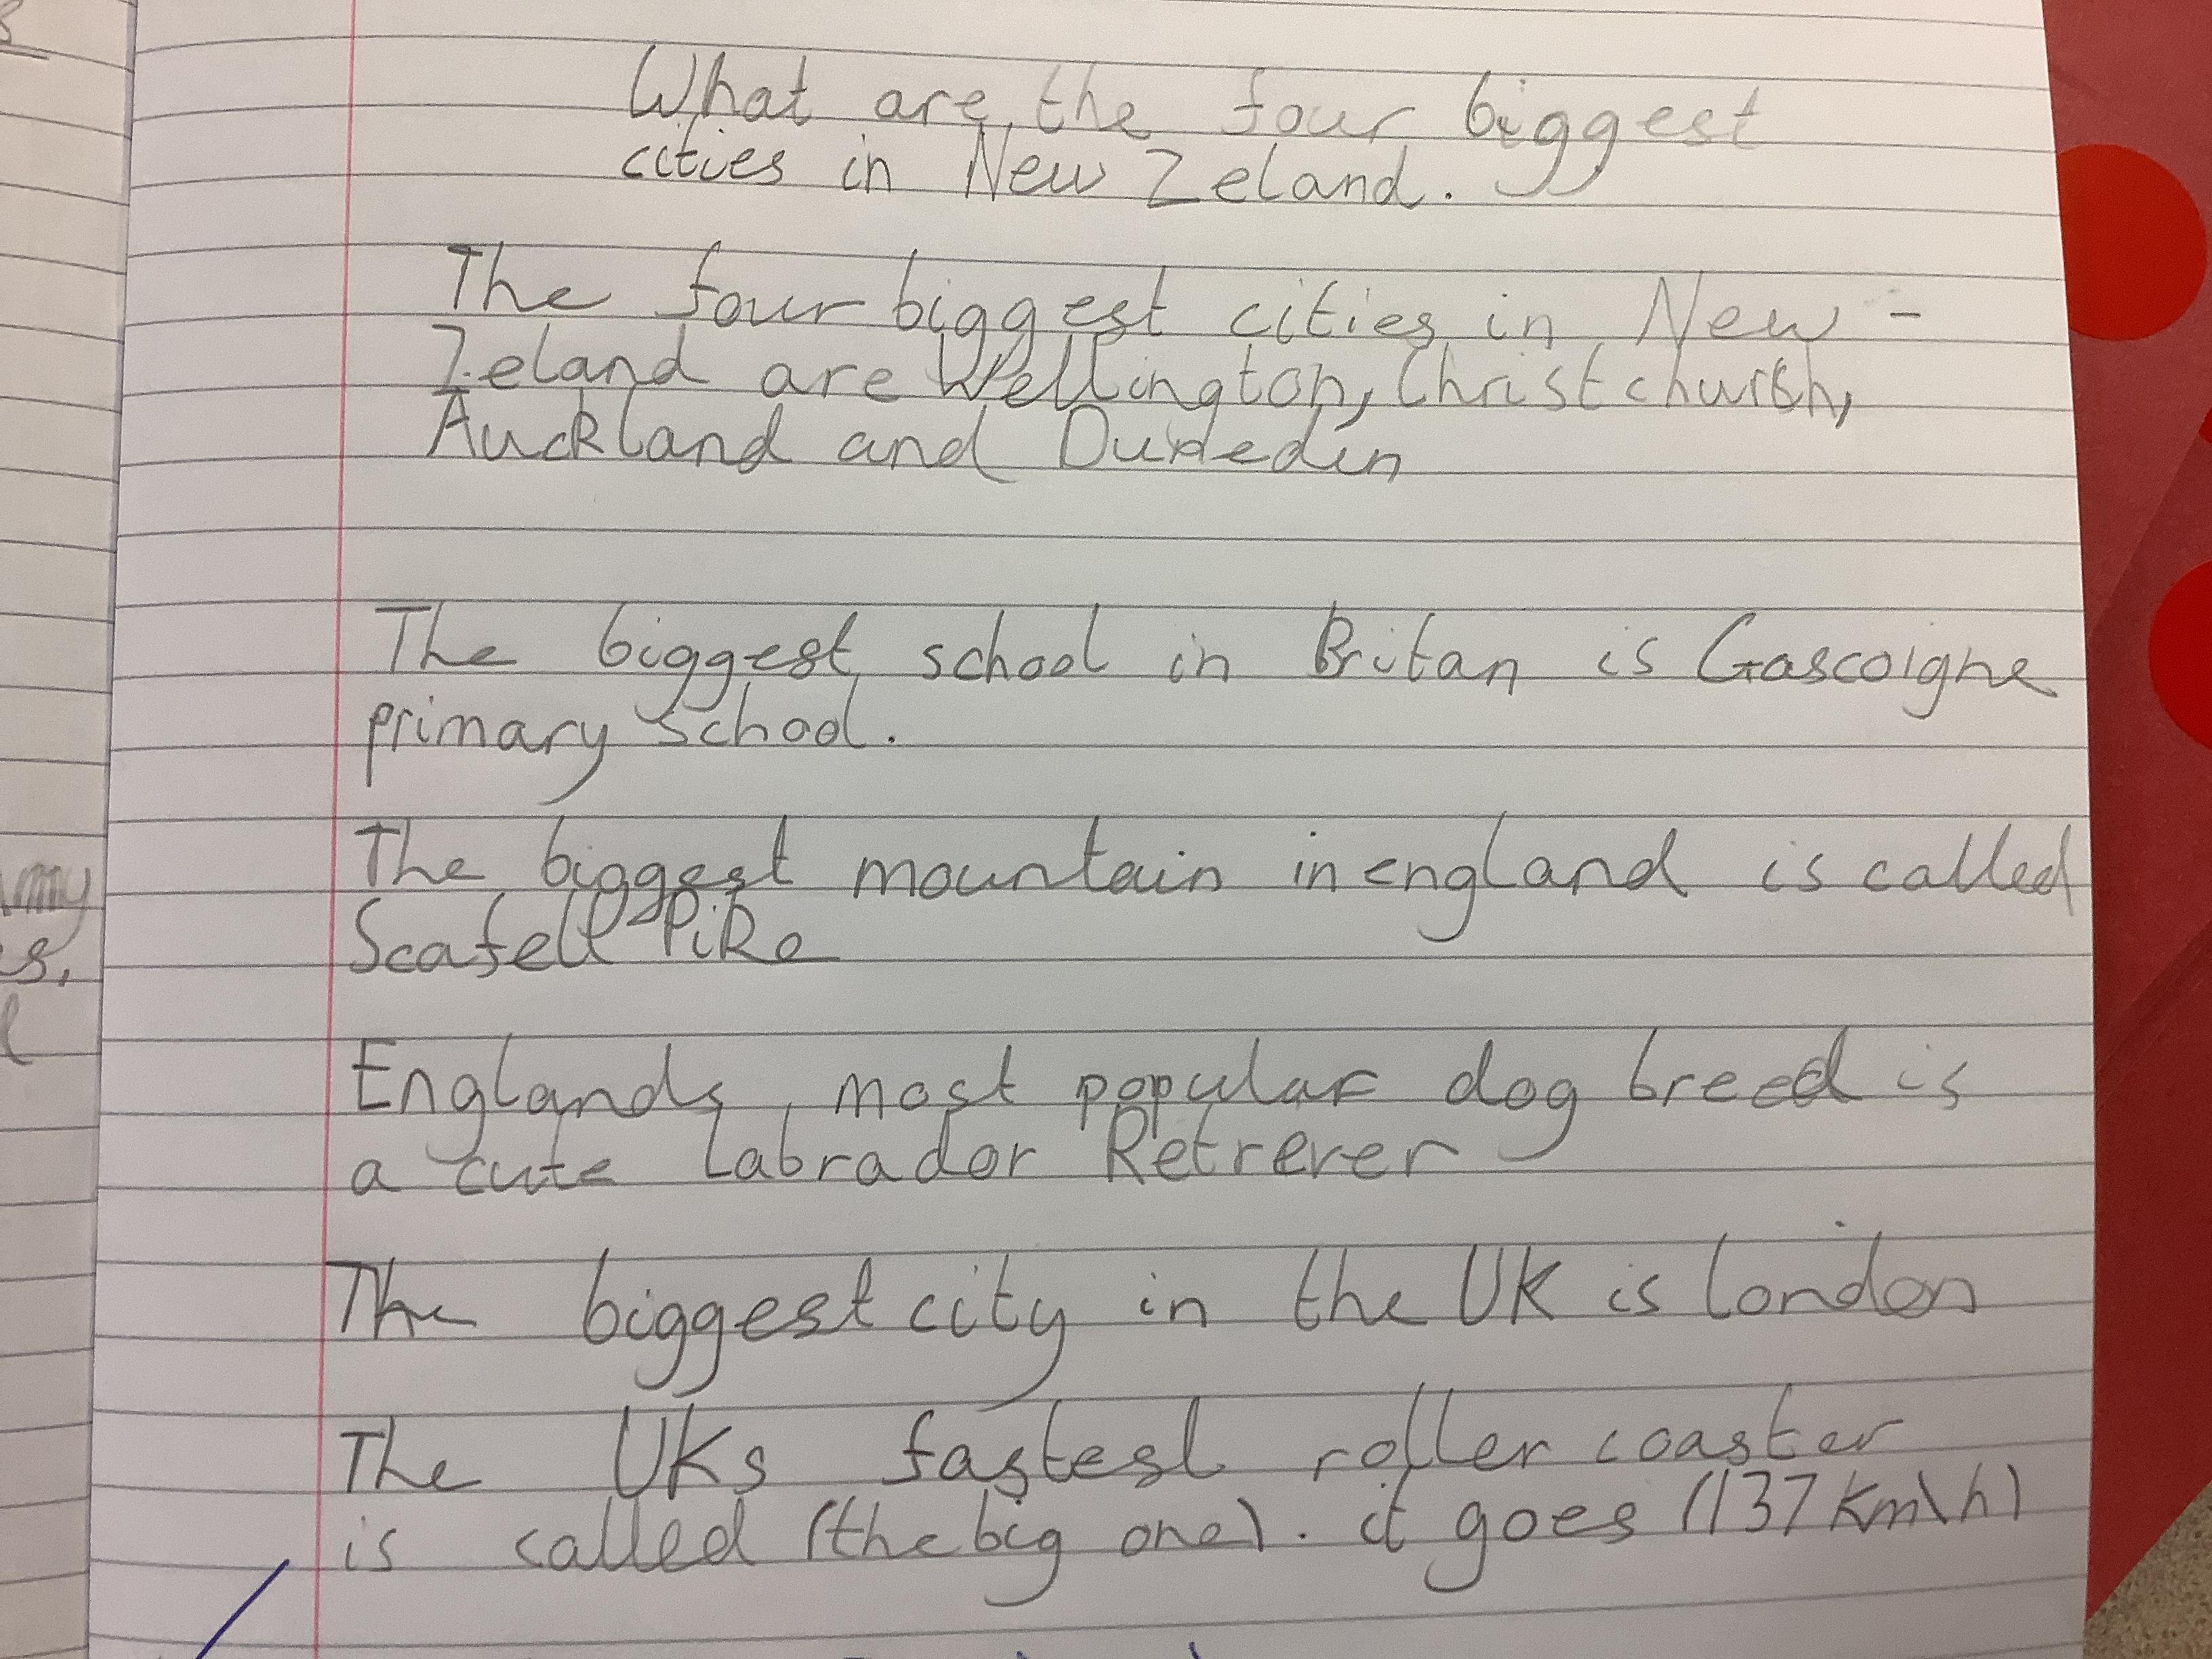 What are the four biggest
cities in New Zeland.
The four biggest cities in New -
Zeland are Wellington, Christchurch,
Auckland and Dunedin
The biggest school in Britan is Gascoigne
primary school.
The biggest mountain in england is called
Scafell Pike
Englands most popular dog breed is
a cute Labrador Retrever
The biggest city in the UK is london
The UKs fastest roller coaster
is called (the big one). it goes (137 km\h)